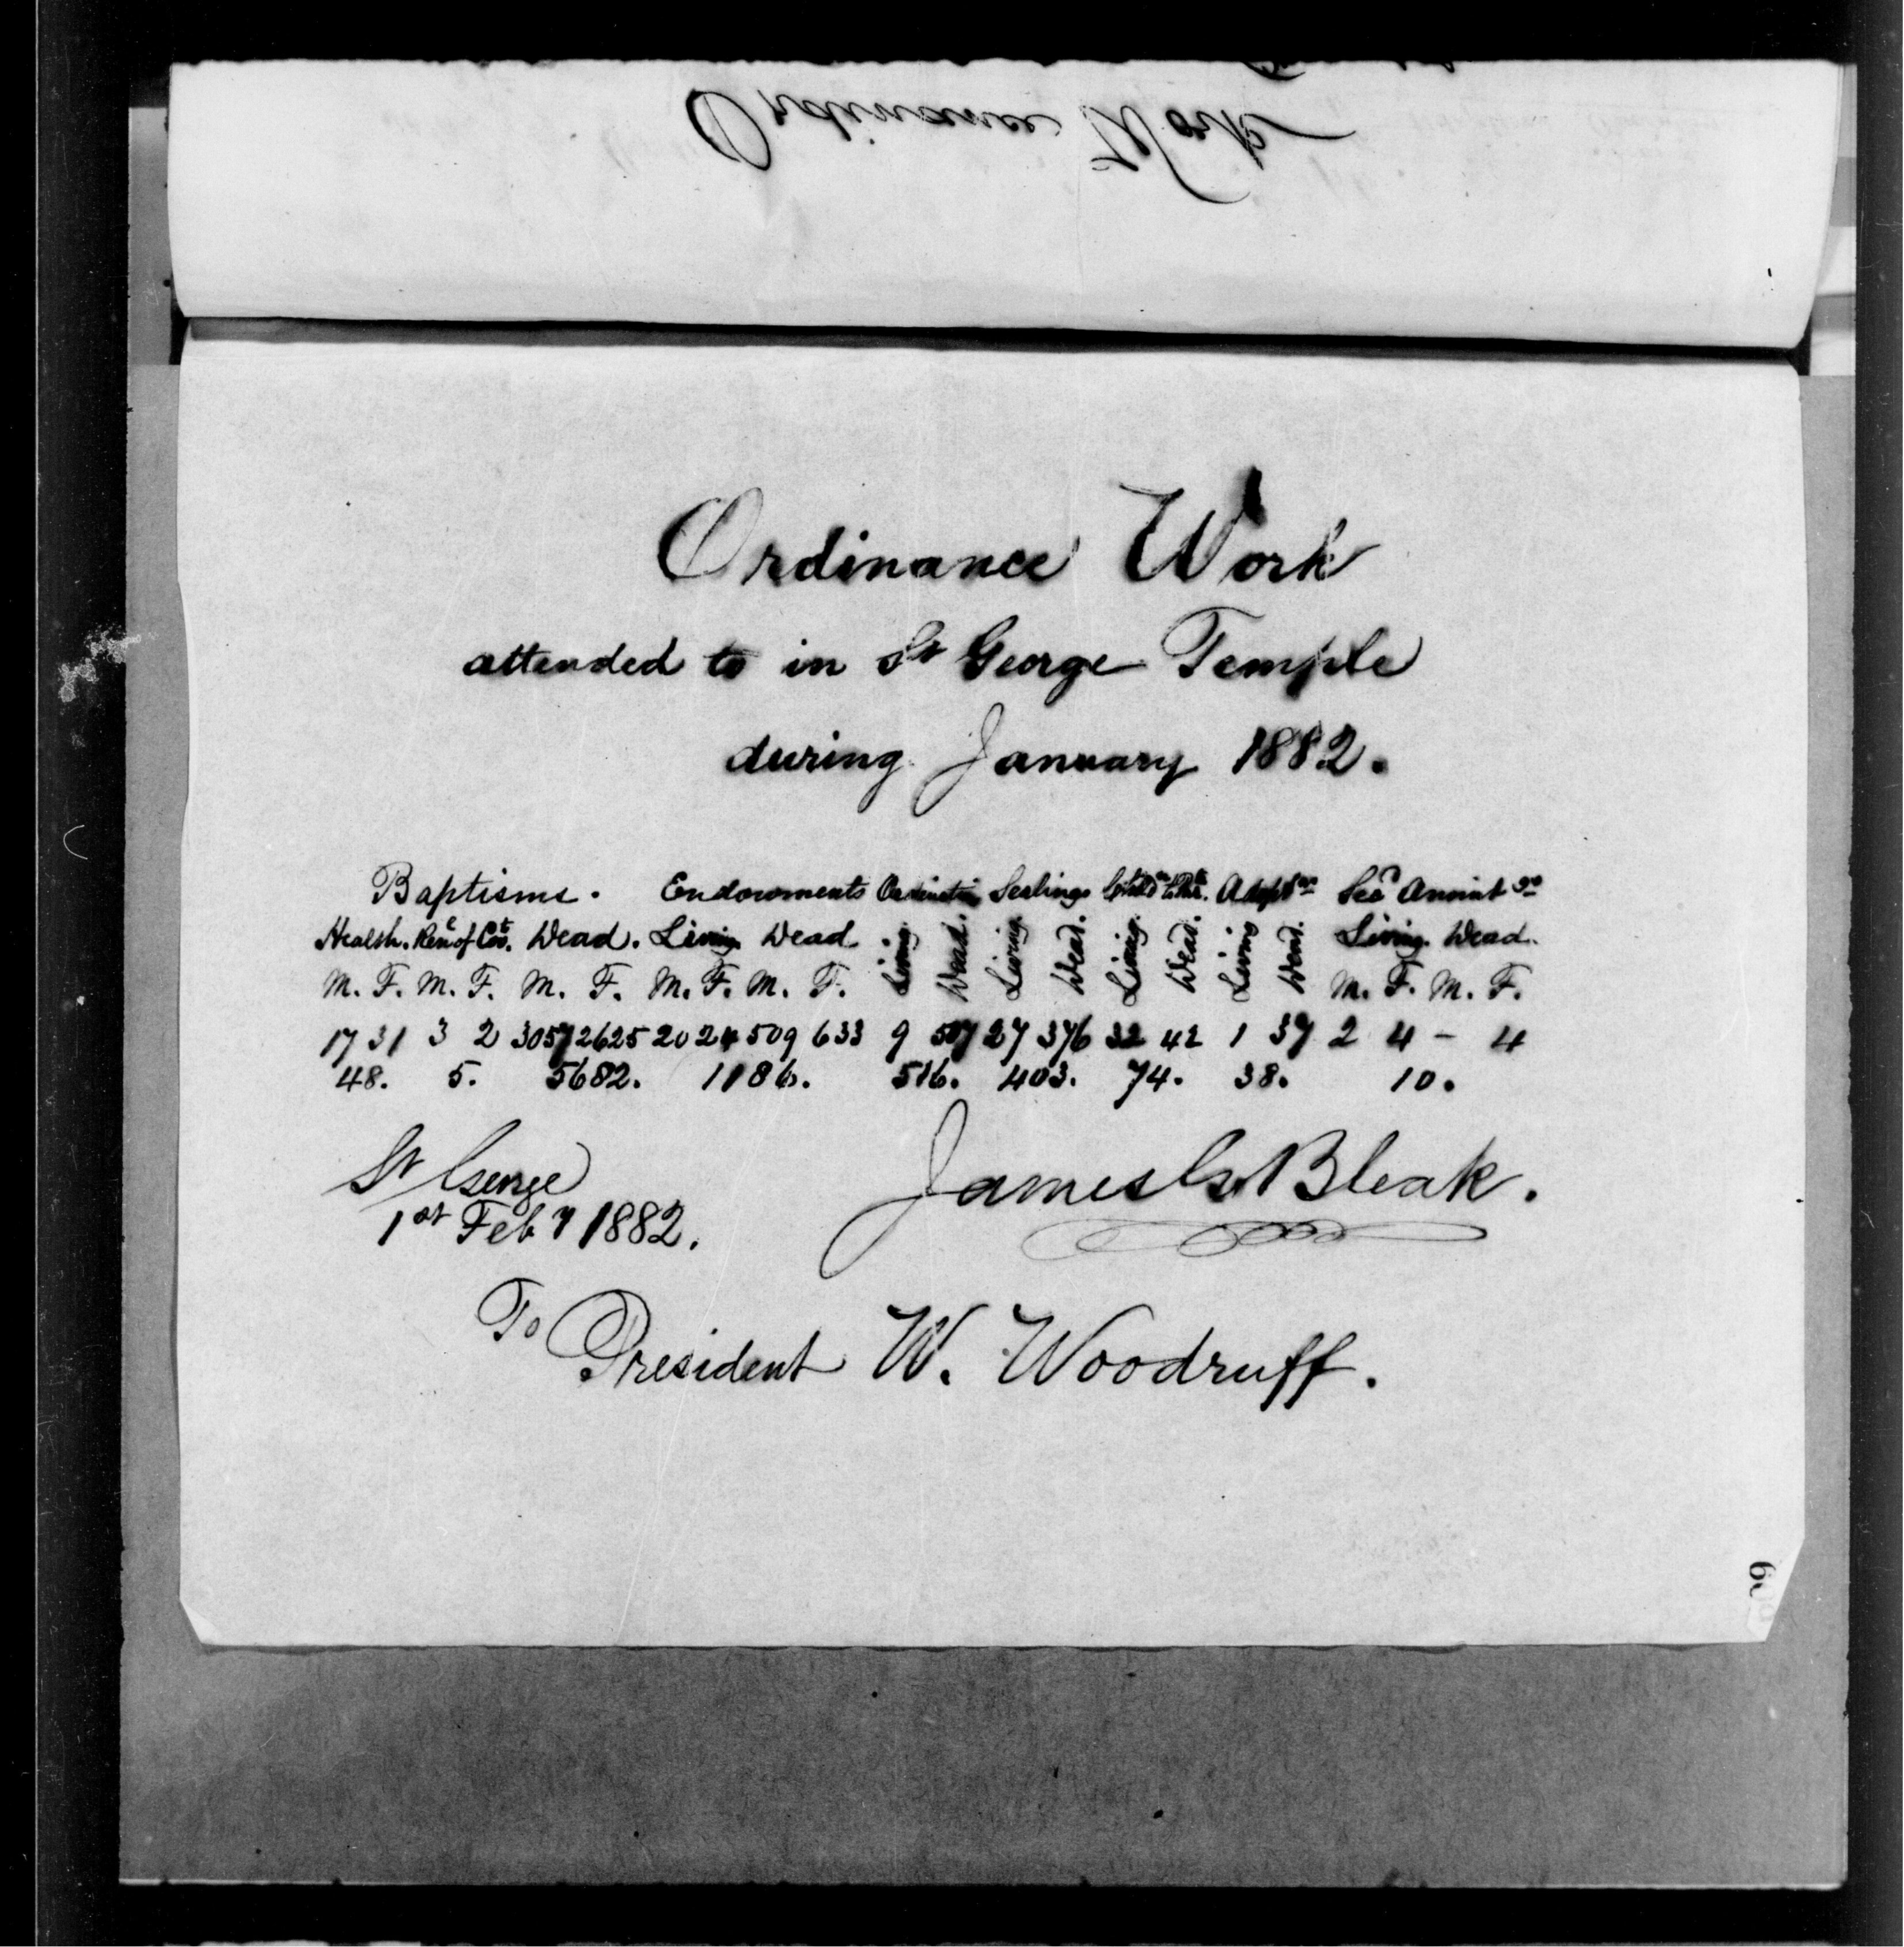 Ordinance Work
Ordinance Work
attended to in St George Temple
during January 1882.
Baptisms. Endowments Ordinatin Sealings Child'n to Par. Adopt'ns Sec'd Anoint'gs
Health. Ren'l of Cov't. Dead. Living Dead. Living. Dead. Living. Dead. Living. Dead. Living Dead. Living. Dead.
M. F. M. F. M. F. M. F. M. F. M. F. M. F.
17 31 3 2 3057 2625 20 24 509 633 9 507 27 376 32 42 1 37 2 4 - 4
48. 5. 5682. 1186. 516. 403. 74. 38. 10.
St George
1st Feby 1882.
James G. Bleak.
To
President W. Woodruff.